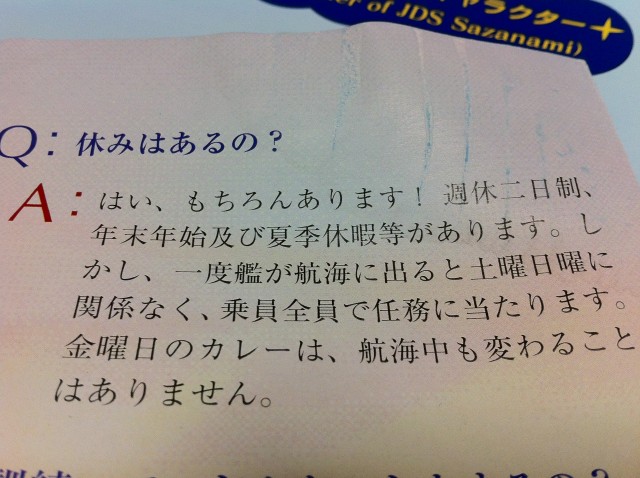 ャラクター
er of JDS Sazanami)
Q: 休みはあるの？
A: はい、もちろんあります！ 週休二日制、
年末年始及び夏季休暇等があります。し
かし、一度艦が航海に出ると土曜日曜に
関係なく、乗員全員で任務に当たります。
金曜日のカレーは、航海中も変わること
はありません。